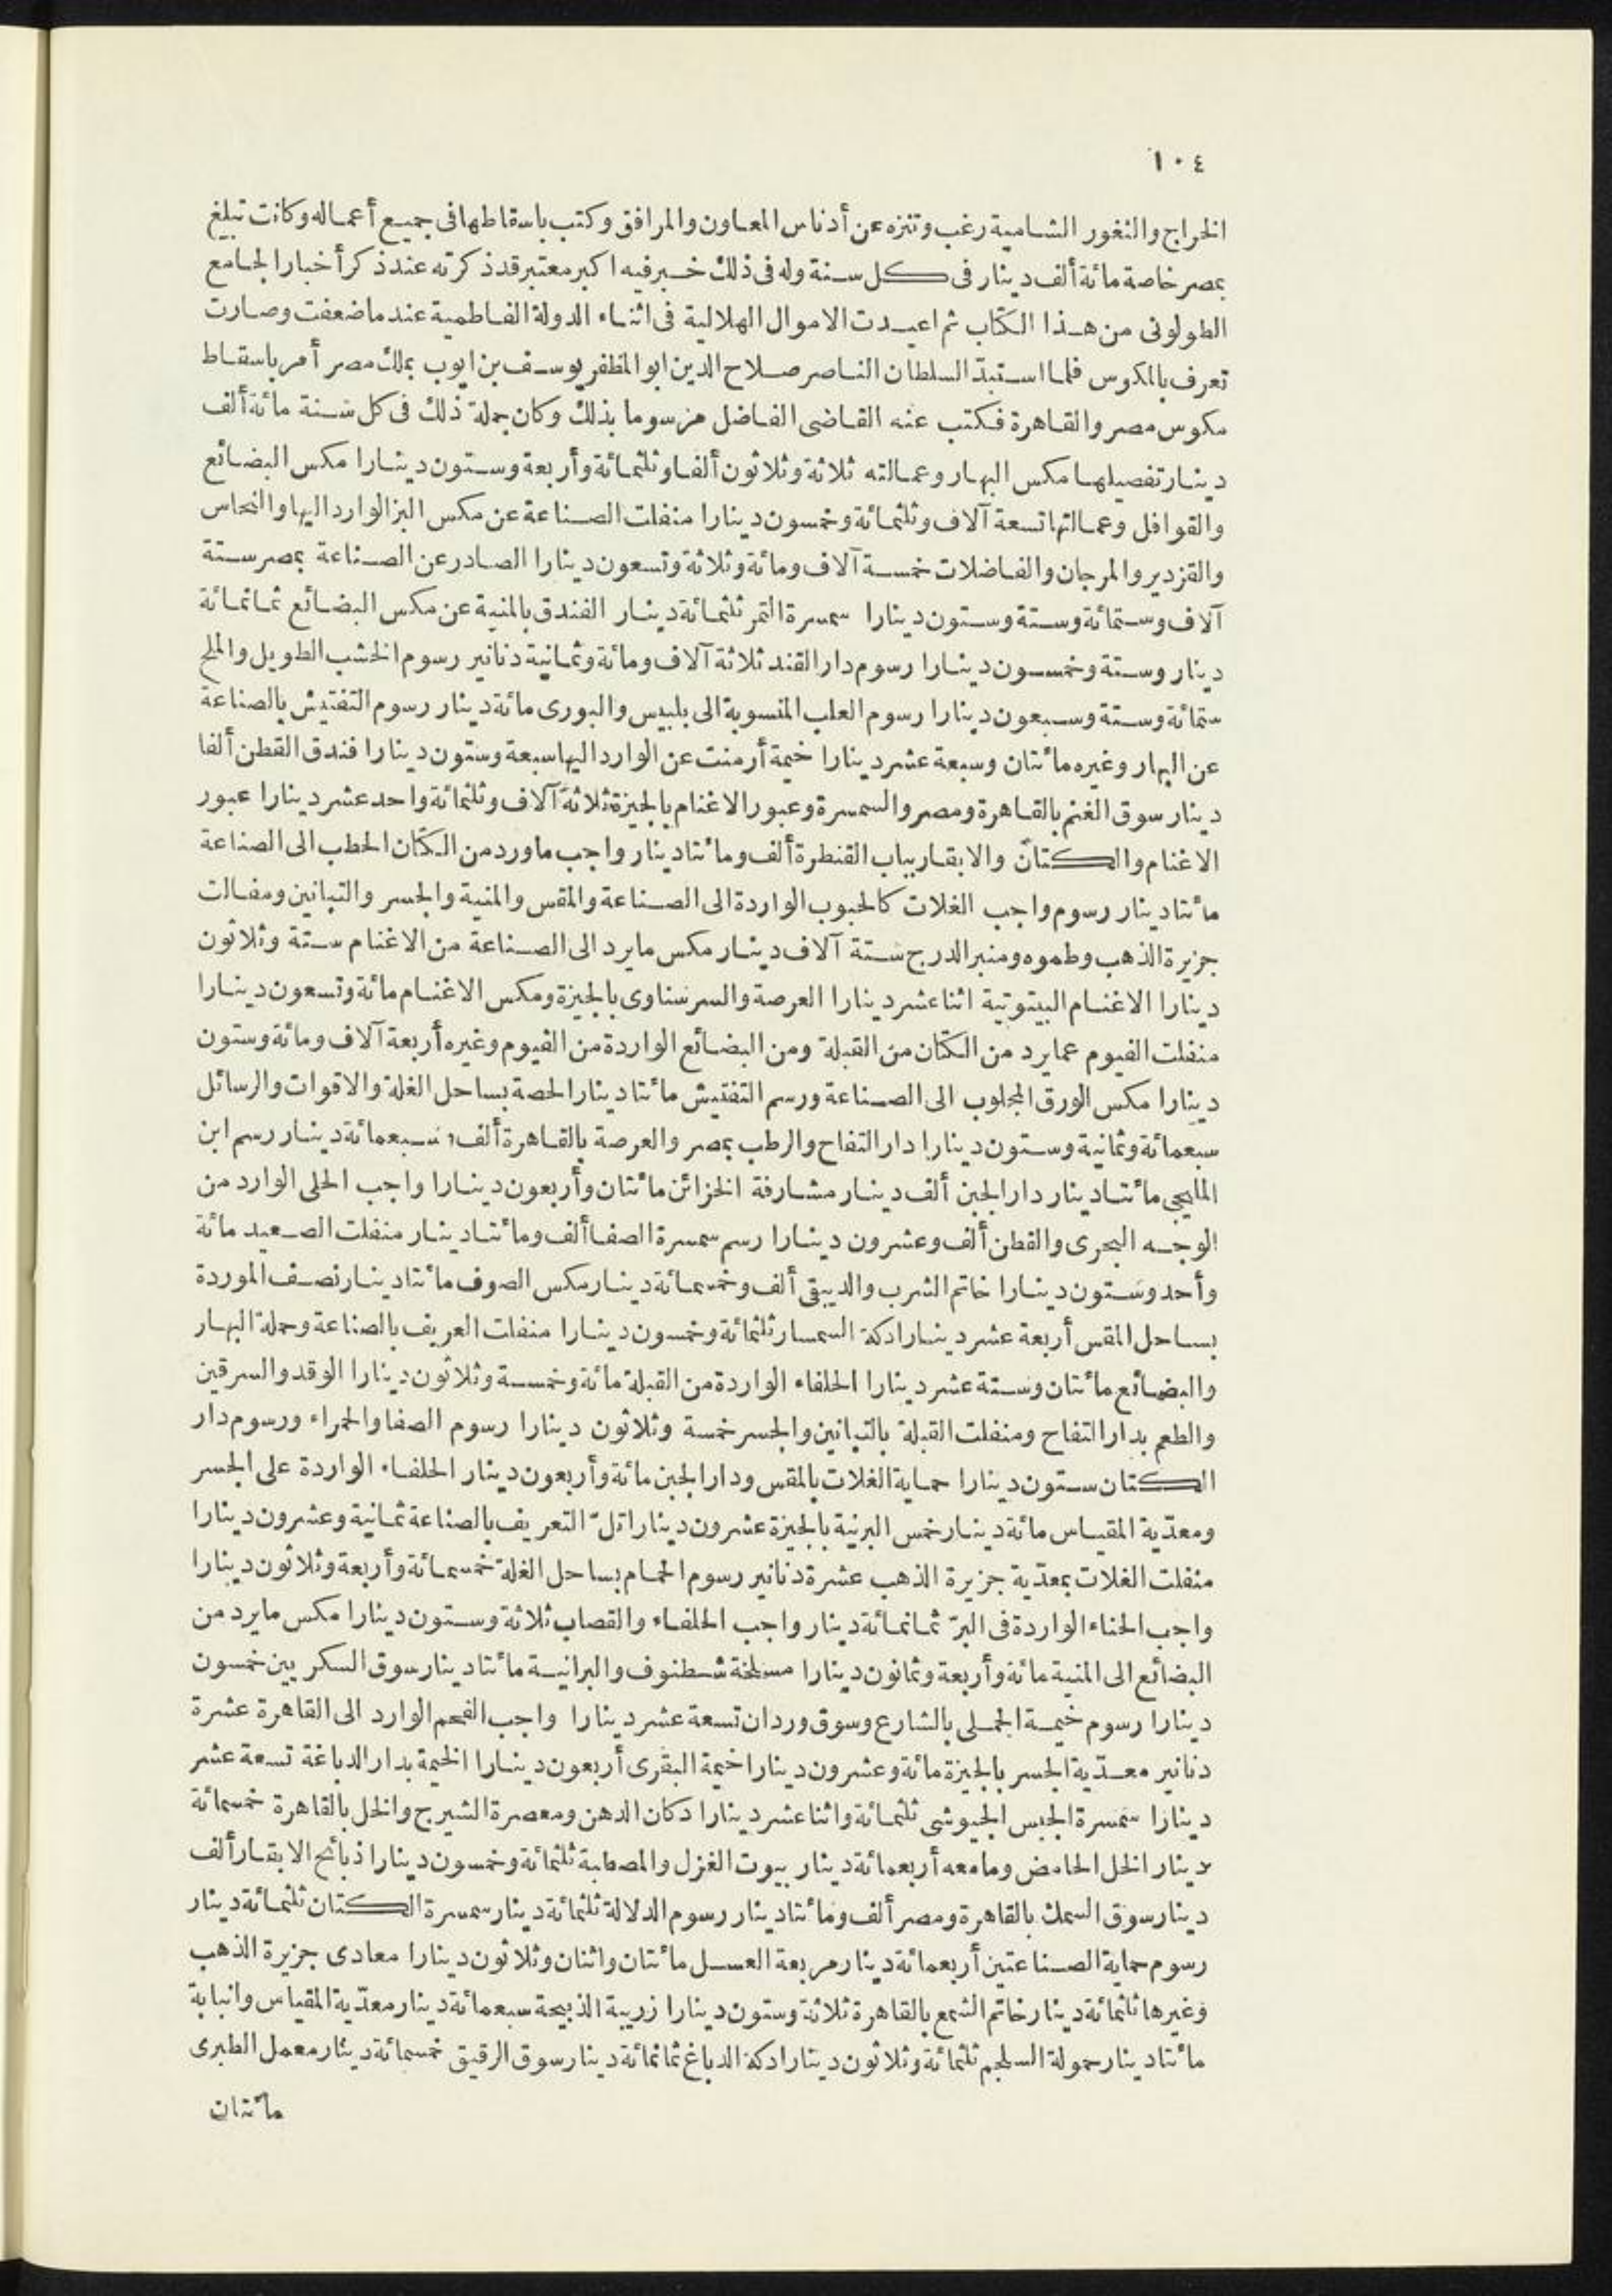 ١٠٤
الخراج والثغور الشامية رغب وتنزه عن أدناس المعاون والمرافق وكتب باسقاطها فى جميع أعماله وكانت تبلغ
بمصر خاصة مائة ألف دينار فى كل سنة وله فى ذلك خبر فيه اكبر معتبر قد ذكرته عند ذكر أخبار الجامع
الطولونى من هذا الكتاب ثم اعيدت الاموال الهلالية فى اثناء الدولة الفاطمية عند ما ضعفت وصارت
تعرف بالمكوس فلما استبدّ السلطان الناصر صلاح الدين ابو المظفر يوسف بن ايوب بملك مصر أمر باسقاط
مكوس مصر والقاهرة فكتب عنه القاضى الفاضل مرسوما بذلك وكان جملة ذلك فى كل سنة مائة ألف
دينار تفصيلها مكس البهار وعمالته ثلاثة وثلاثون ألفا وثلثمائة وأربعة وستون دينارا مكس البضائع
والقوافل وعمالتها تسعة آلاف وثلثمائة وخمسون دينارا منفلت الصناعة عن مكس البز الوارد اليها والنحاس
والقزدير والمرجان والفاضلات خمسة آلاف ومائة وثلاثة وتسعون دينارا الصادر عن الصناعة بمصر ستة
آلاف وستمائة وستة وستون دينارا سمسرة التمر ثلثمائة دينار الفندق بالمنية عن مكس البضائع ثمانمائة
دينار وستة وخمسون دينارا رسوم دار القند ثلاثة آلاف ومائة وثمانية دنانير رسوم الخشب الطويل والملح
ستمائة وستة وسبعون دينارا رسوم العلب المنسوبة الى بلبيس والبورى مائة دينار رسوم التفتيش بالصناعة
عن البهار وغيره مائتان وسبعة عشر دينارا خيمة أرمنت عن الوارد اليها سبعة وستون دينارا فندق القطن ألفا
دينار سوق الغنم بالقاهرة ومصر والسمسرة وعبور الاغنام بالجيزة ثلاثة آلاف وثلثمائة واحد عشر دينارا عبور
الاغنام والكتان والابقار بباب القنطرة ألف ومائتا دينار واجب ما ورد من الكتان الحطب الى الصناعة
مائتا دينار رسوم واجب الغلات كالحبوب الواردة الى الصناعة والمقس والمنية والجسر والتبانين ومفالت
جزيرة الذهب وطموه ومنبر الدرج ستة آلاف دينار مكس ما يرد الى الصناعة من الاغنام ستة وثلاثون
دينارا الاغنام البيتوتية اثنا عشر دينارا العرصة والسرسناوى بالجيزة ومكس الاغنام مائة وتسعون دينارا
منفلت الفيوم عما يرد من الكتان من القبلة ومن البضائع الواردة من الفيوم وغيره أربعة آلاف ومائة وستون
دينارا مكس الورق المجلوب الى الصناعة ورسم التفتيش مائتا دينار الحصة بساحل الغلة والاقوات والرسائل
سبعمائة وثمانية وستون دينارا دار التفاح والرطب بمصر والعرصة بالقاهرة ألف وسبعمائة دينار رسم ابن
المليجى مائتا دينار دار الجبن ألف دينار مشارفة الخزائن مائتان وأربعون دينارا واجب الحلى الوارد من
الوجه البحرى والقطن ألف وعشرون دينارا رسم سمسرة الصفا ألف ومائتا دينار منفلت الصعيد مائة
وأحد وستون دينارا خاتم الشرب والديبقى ألف وخمسمائة دينار مكس الصوف مائتا دينار نصف الموردة
بساحل المقس أربعة عشر دينارا دكة السمسار ثلثمائة وخمسون دينارا منفلت العريف بالصناعة وحملة البهار
والبضائع مائتان وستة عشر دينارا الحلفاء الواردة من القبلة مائة وخمسة وثلاثون دينارا الوقد والسرقين
والطعم بدار التفاح ومنفلت القبلة بالتبانين والجسر خمسة وثلاثون دينارا رسوم الصفا والحمراء ورسوم دار
الكتان ستون دينارا حماية الغلات بالمقس ودار الجبن مائة وأربعون دينار الحلفاء الواردة على الجسر
ومعدّية المقياس مائة دينار خمس البرنية بالجيزة عشرون دينارا تلّ التعريف بالصناعة ثمانية وعشرون دينارا
منفلت الغلات بمعدّية جزيرة الذهب عشرة دنانير رسوم الحمام بساحل الغلة خمسمائة وأربعة وثلاثون دينارا
واجب الحناء الواردة فى البرّ ثمانمائة دينار واجب الحلفاء والقصاب ثلاثة وستون دينارا مكس ما يرد من
البضائع الى المنية مائة وأربعة وثمانون دينارا مسلخة شطنوف والبرانية مائتا دينار سوق السكر بين خمسون
دينارا رسوم خيمة الجملى بالشارع وسوق وردان تسعة عشر دينارا واجب الفحم الوارد الى القاهرة عشرة
دنانير معدّية الجسر بالجيزة مائة وعشرون دينارا خيمة البقرى أربعون دينارا الخيمة بدار الدباغة تسعة عشر
دينارا سمسرة الجبس الجيوشى ثلثمائة واثنا عشر دينارا دكان الدهن ومعصرة الشيرج والخل بالقاهرة خمسمائة
دينار الخل الحامض وما معه أربعمائة دينار بيوت الغزل والمصطبة ثلثمائة وخمسون دينارا ذبائح الابقار ألف
دينار سوق السمك بالقاهرة ومصر ألف ومائتا دينار رسوم الدلالة ثلثمائة دينار سمسرة الكتان ثلثمائة دينار
رسوم حماية الصناعتين أربعمائة دينار مربعة العسل مائتان واثنان وثلاثون دينارا معادى جزيرة الذهب
وغيرها ثلثمائة دينار خاتم الشمع بالقاهرة ثلاثة وستون دينارا زريبة الذبيحة سبعمائة دينار معدّية المقياس وانبابة
مائتا دينار حمولة السلجم ثلثمائة وثلاثون دينارا دكة الدباغ ثمانمائة دينار سوق الرقيق خمسمائة دينار معمل الطبرى
مائتان